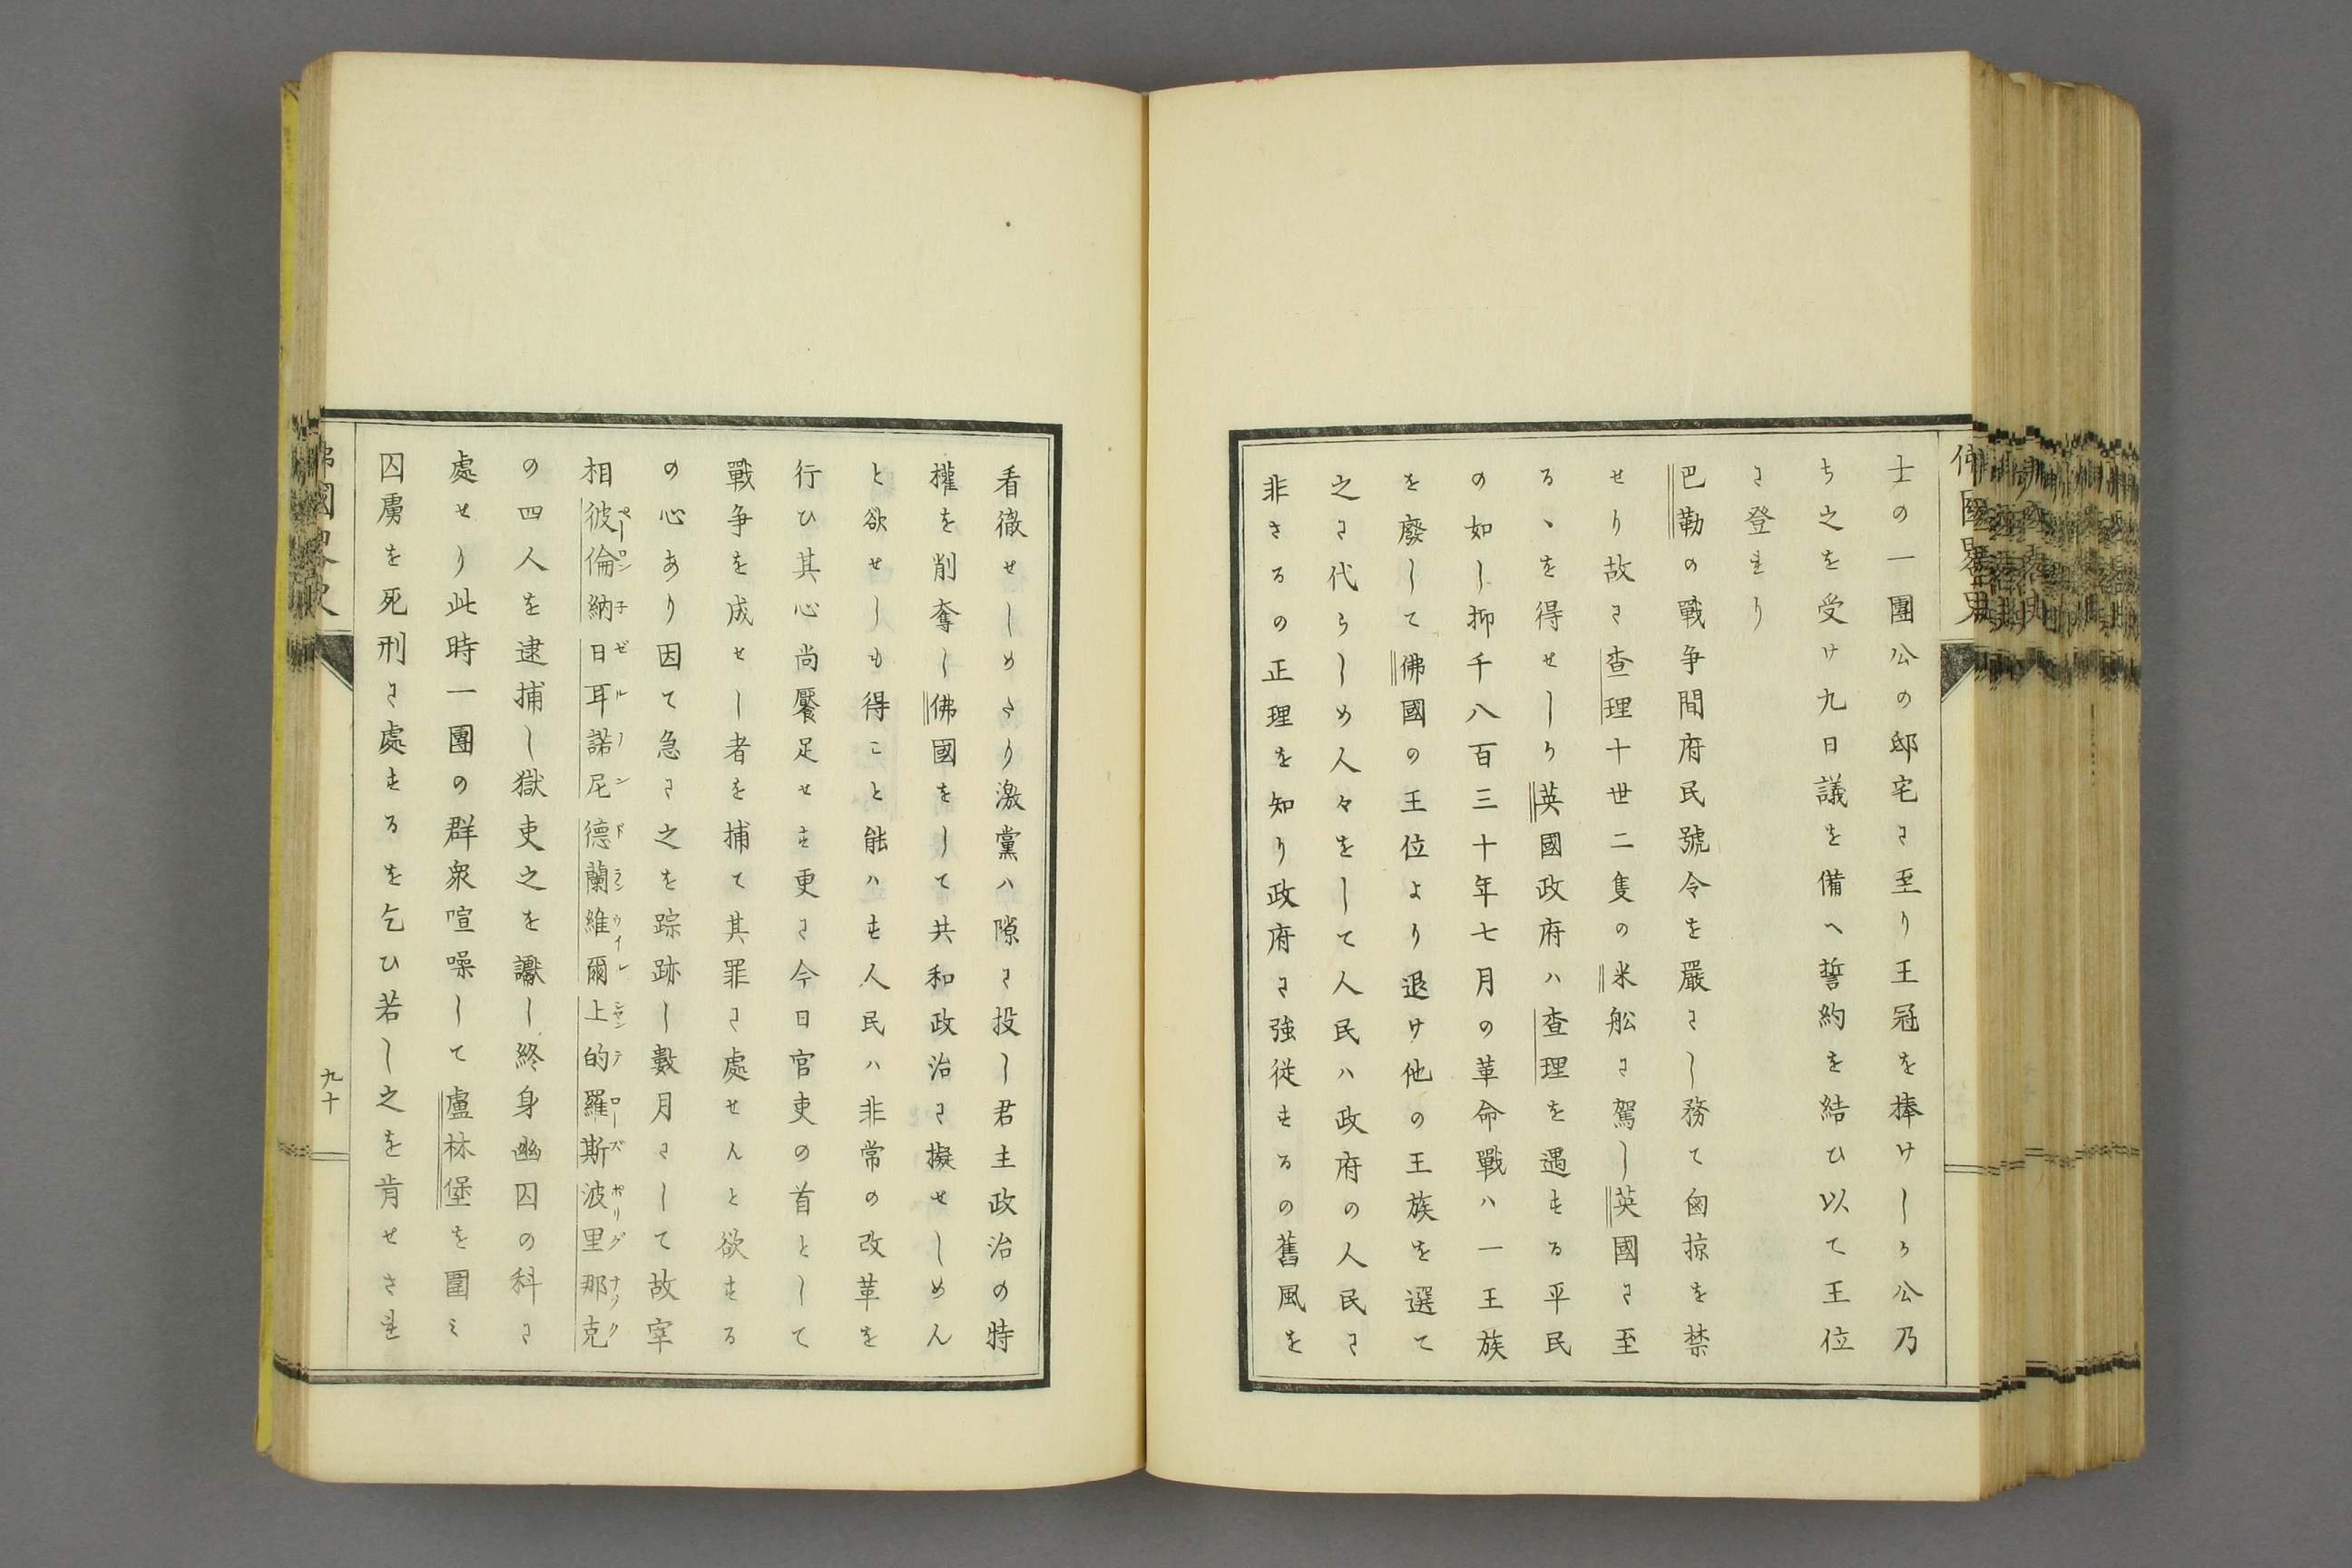 士の一團公の邸宅に至り王冠を捧けしか公乃
ち之を受け九日議を備へ誓約を結ひ以て王位
に登れり
巴勒の戰争間府民號令を嚴にし務て鹵掠を禁
せり故に査理十世二隻の米舩に駕し英國に至
るヽを得せしか英國政府ハ査理を遇する平民
の如し抑千八百三十年七月の革命戰ハ一王族
を廢して佛國の王位より退け他の王族を選て
之に代らしめ人々をして人民ハ政府の人民に
非さるの正理を知り政府に強従するの舊風を
看徹せしめたり激黨ハ隙に投し君主政治の特
權を削奪し佛國をして共和政治に擬せしめん
と欲せしも得こと能ハす人民ハ非常の改革を
行ひ其心尚饜足せす更に今日官吏の首として
戰争を成せし者を捕て其罪に處せんと欲する
の心あり因て急に之を踪跡し數月にして故宰
相彼倫納ペーロン子日耳諾尼ゼルノン德蘭維爾ドランウイレ上的羅斯シヤンテローズ波里那克ポリグナツク
の四人を逮捕し獄吏之を讞し終身幽囚の科に
處せり此時一團の群衆喧噪して盧林堡を圍ミ
囚虜を死刑に處するを乞ひ若し之を肯せされ
佛國畧史
九十